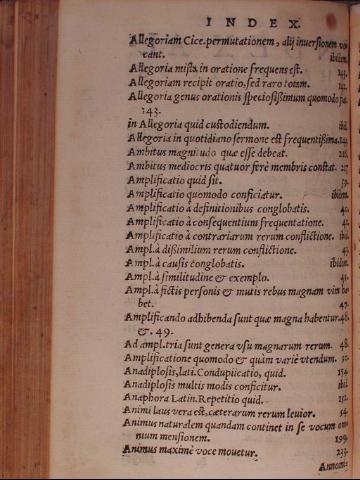 INDEX.
Allegoriam Cice. permutationem, alij inversionem vo
cant. ibidem.
Allegoria mista in oratione frequens est. 143.
Allegoriam recipit oratio, sed raro totam. 143.
Allegoria genus orationis speciosißimum quomodo fiat.
143.
in Allegoria quid custodiendum. ibid.
Allegoria in quotidiano sermone est frequentißima. 144.
Ambitus magnitudo quæ esse debeat. 216.
Ambitus mediocris quatuor ferè membris constat. 217
Amplificatio quid sit. 39.
Amplificatio quomodo conficiatur. ibidem.
Amplificatio à definitionibus conglobatis. 40.
Amplificatio à consequentium frequentatione. 41.
Amplificatio à contrariarum rerum conflictione. ibid.
Ampl. à dißimilium rerum conflictione.
Ampl. à causis conglobatis. ibidem.
Ampl. à similitudine & exemplo. 45.
Ampl. à fictis personis & mutis rebus magnam vim ha
bet. 47.
Amplificando adhibenda sunt quæ magna habentur. 48.
&. 49.
Ad ampl. tria sunt genera vsu magnarum rerum. 48.
Amplificatione quomodo & quàm variè vtendum. 52.
Anadiplosis, lati. Conduplicatio, quid. 154.
Anadiplosis multis modis conficitur. ibid.
Anaphora Latin. Repetitio quid. 152.
Animi laus vera est, cæterarum rerum leuior. 54.
Animus naturalem quandam continet in se vocum om
nium mensionem. 199.
Animus maximè voce mouetur. 233.
Annomi=